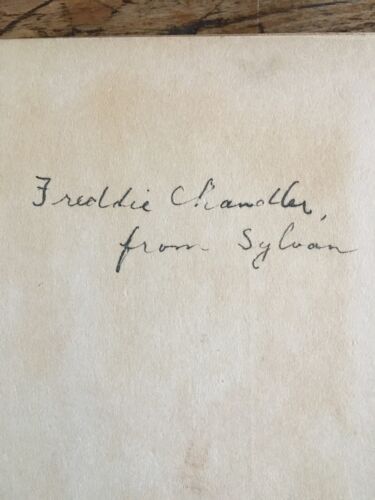 Freddie Chandler,
from Sylvan